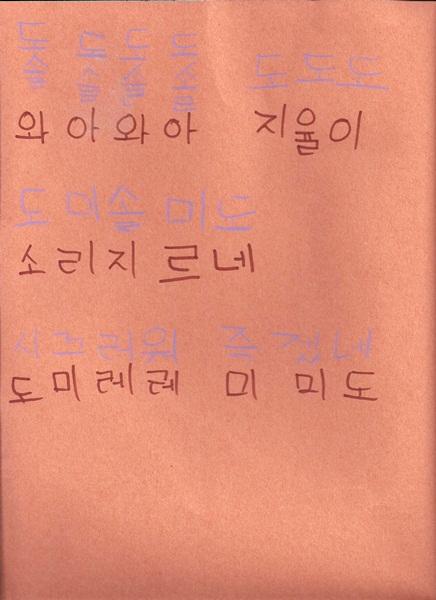 도솔 도솔 도솔 도솔 도도도
와아와아 지율이
도미솔미도
소리지르네
시끄러워 죽겠네
도미레레 미 미도